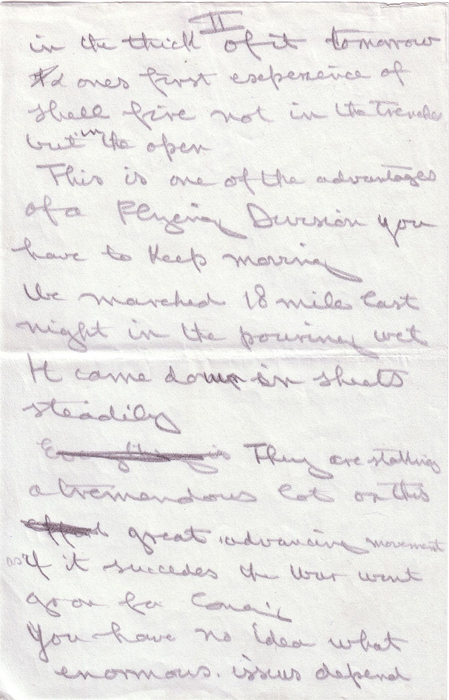 II
in the thick of it tomorrow
& ones first experience of
shell fire not in the trenches
but in the open
This is one of the advantages
of a Flying Division you
have to keep moving
We marched 18 mile last
night in the pouring wet
It came down in sheets
steadily
Everything is They are staking
a tremendous lot on this
great advancing movement
as if it succedes the war wont
go on for
You have no idea what
enormous issues depend